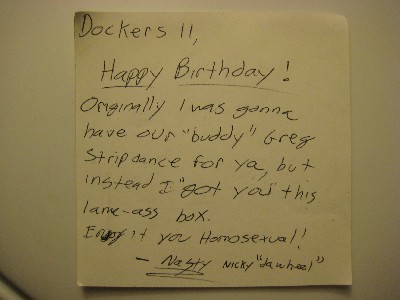 Dockers 11,
Happy Birthday!
Originally I was gonna
have our "buddy" Greg
Stripdance for ya, but
instead I "got you" this
lame-ass box.
Enjoy it you Homosexual!
- Nasty Nicky "da wheel"